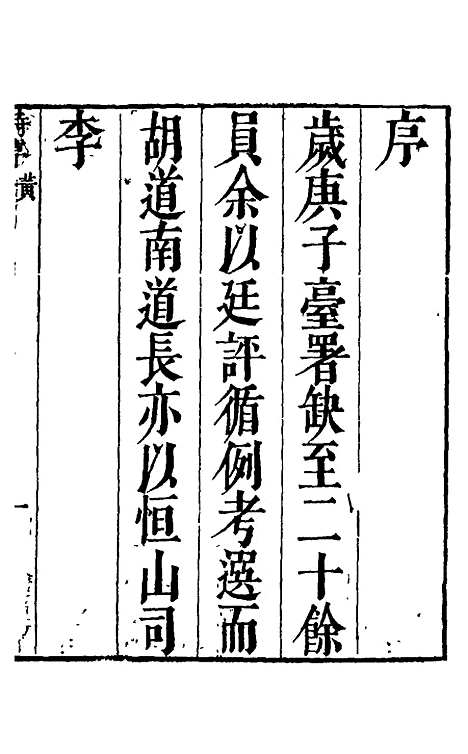 序
歲庚子臺署缺至二十餘
員余以廷評循例考選而
胡道南道長亦以恒山司
李